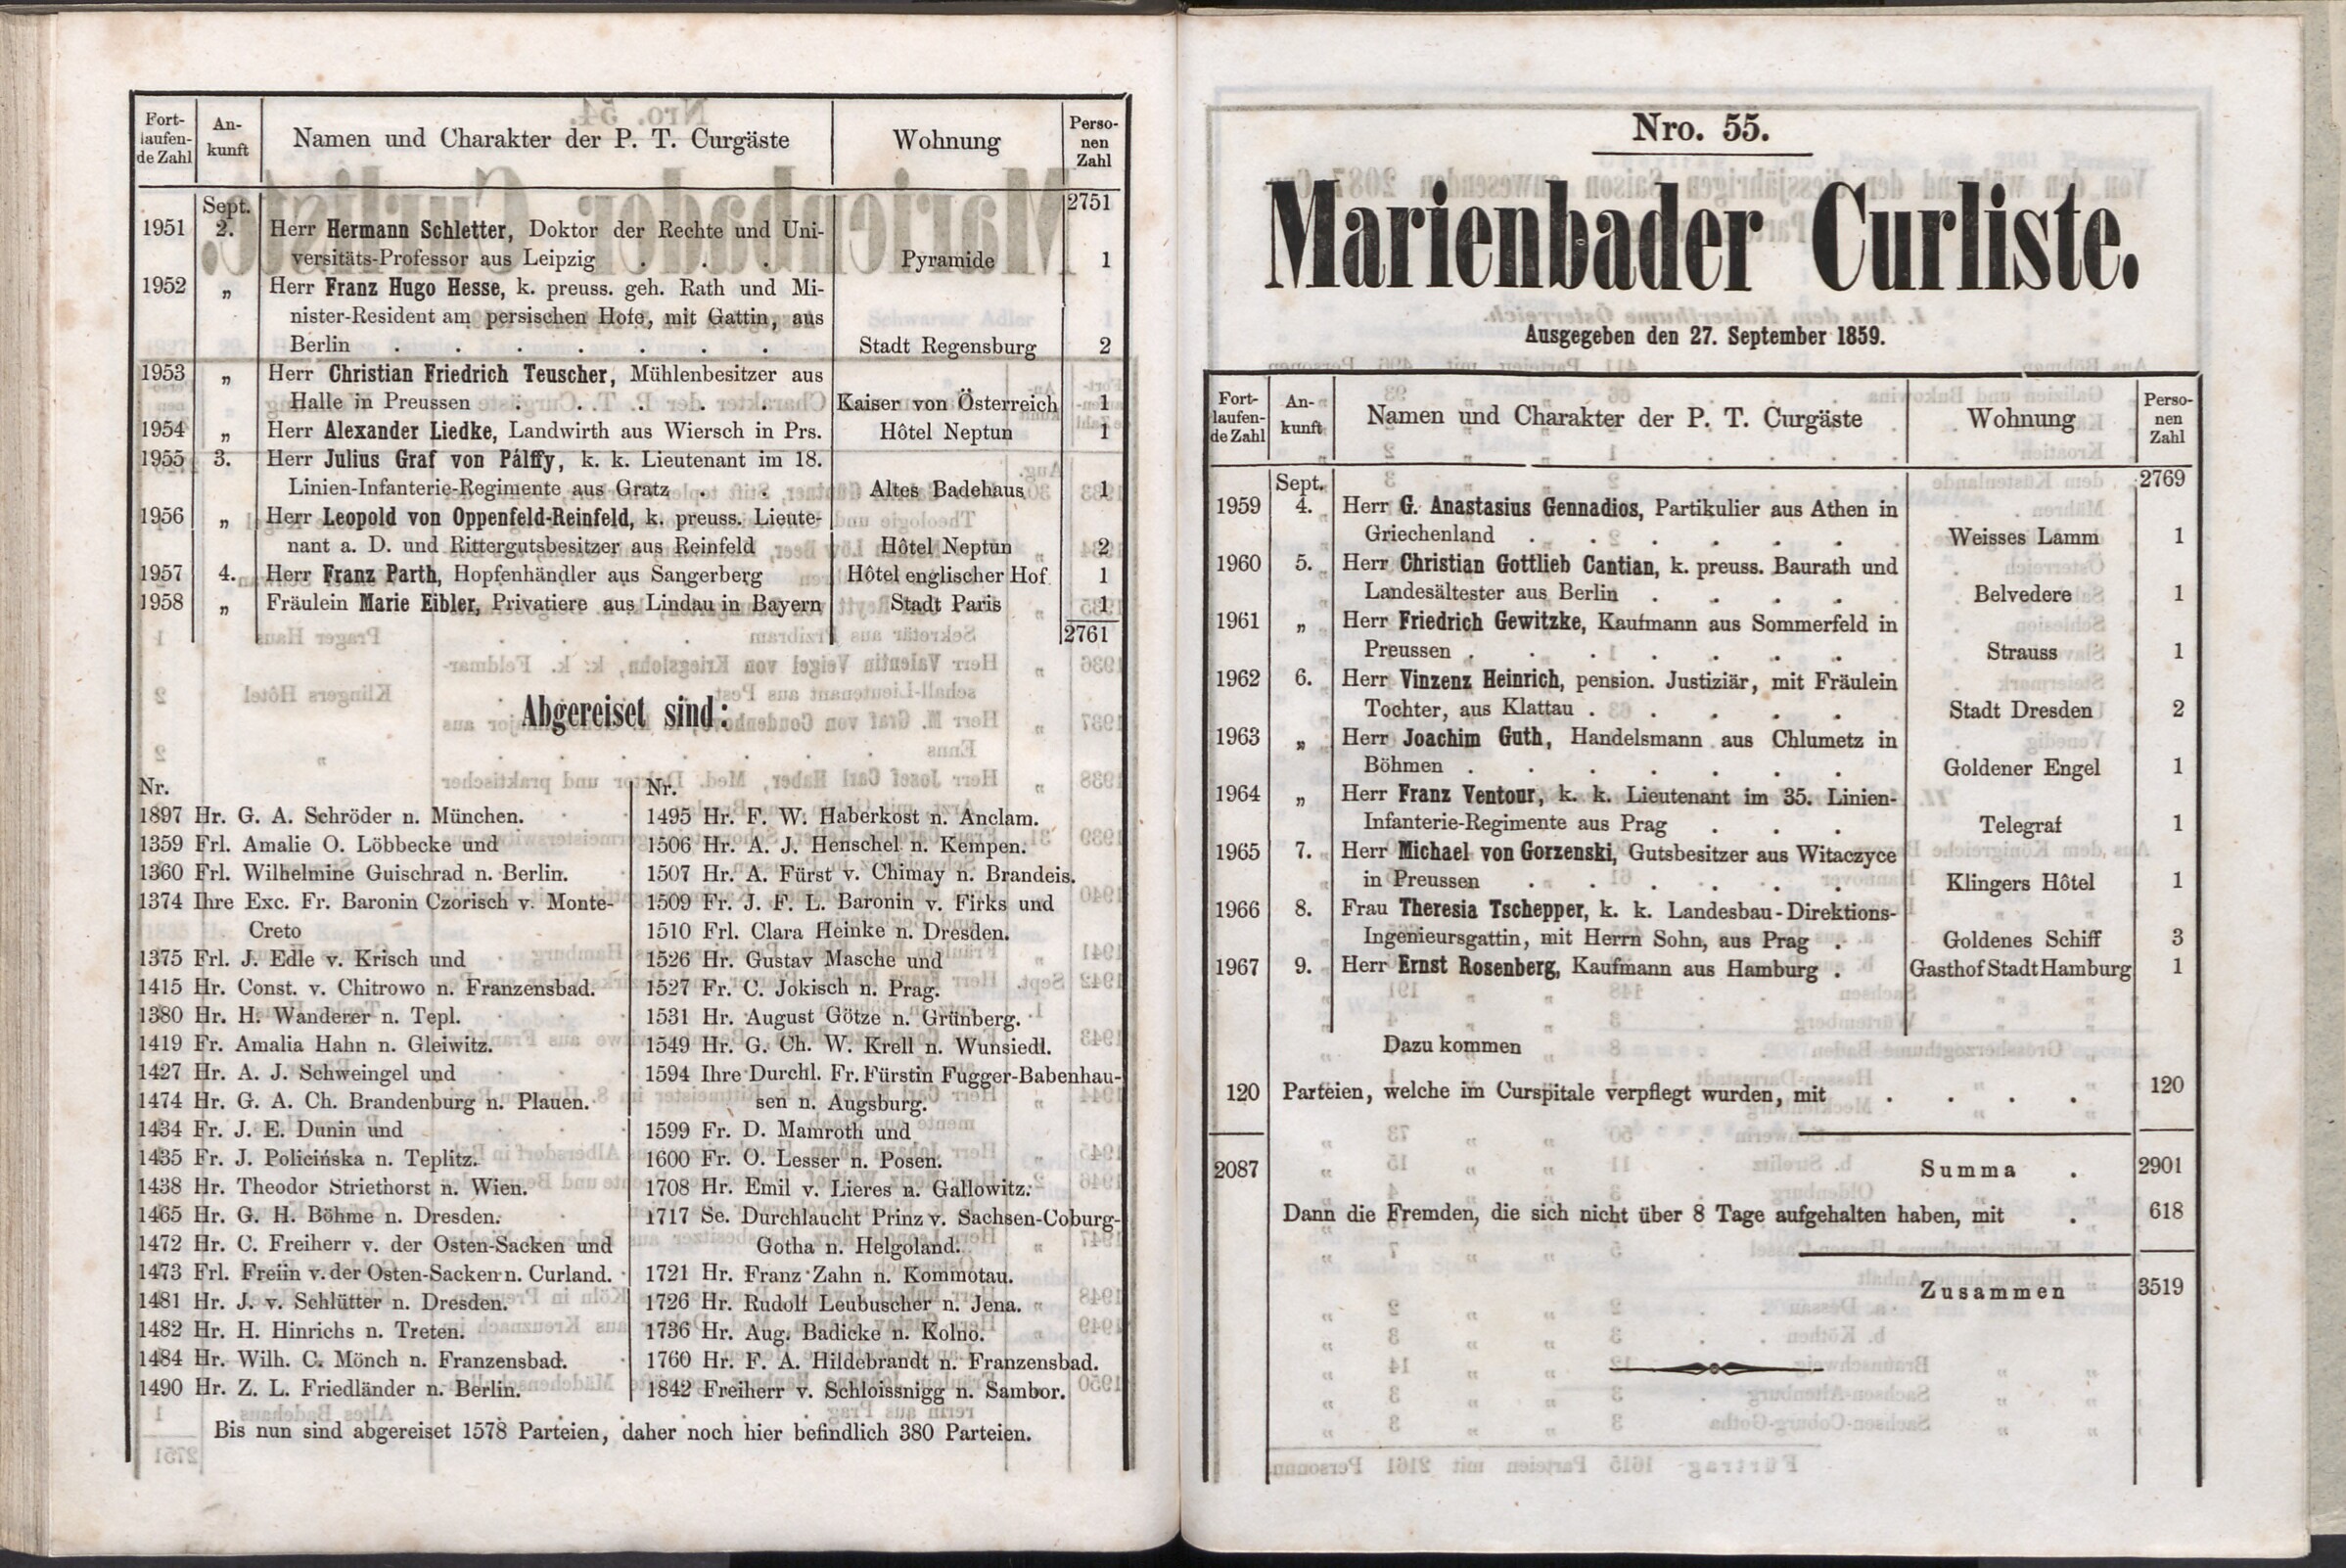 Fort-
laufen-
de Zahl
An-
kunft
Namen und Charakter der P. T. Curgäste
Wohnung
Perso-
nen
Zahl
Sept. 2751
1951 2. Herr Hermann Schletter, Doktor der Rechte und Uni-
versitäts-Professor aus Leipzig . . . Pyramide 1
1952 „ Herr Franz Hugo Hesse, k. preuss. geh. Rath und Mi-
nister-Resident am persischen Hofe, mit Gattin, aus
Berlin . . . . . . . Stadt Regensburg 2
1953 „ Herr Christian Friedrich Teuscher, Mühlenbesitzer aus
Halle in Preussen . . . . . Kaiser von Österreich 1
1954 „ Herr Alexander Liedke, Landwirth aus Wiersch in Prs. Hôtel Neptun 1
1955 3. Herr Julius Graf von Pálffy, k. k. Lieutenant im 18.
Linien-Infanterie-Regimente aus Gratz . . Altes Badehaus 1
1956 „ Herr Leopold von Oppenfeld-Reinfeld, k. preuss. Lieute-
nant a. D. und Rittergutsbesitzer aus Reinfeld Hôtel Neptun 2
1957 4. Herr Franz Parth, Hopfenhändler aus Sangerberg Hôtel englischer Hof 1
1958 „ Fräulein Marie Eibler, Privatiere aus Lindau in Bayern Stadt Paris 1
2761
Abgereiset sind:
Nr.
1897 Hr. G. A. Schröder n. München.
1359 Frl. Amalie O. Löbbecke und
1360 Frl. Wilhelmine Guischrad n. Berlin.
1374 Ihre Exc. Fr. Baronin Czorisch v. Monte-
Creto
1375 Frl. J. Edle v. Krisch und
1415 Hr. Const. v. Chitrowo n. Franzensbad.
1380 Hr. H. Wanderer n. Tepl.
1419 Fr. Amalia Hahn n. Gleiwitz.
1427 Hr. A. J. Schweingel und
1474 Hr. G. A. Ch. Brandenburg n. Plauen.
1434 Fr. J. E. Dunin und
1435 Fr. J. Policińska n. Teplitz.
1438 Hr. Theodor Striethorst n. Wien.
1465 Hr. G. H. Böhme n. Dresden.
1472 Hr. C. Freiherr v. der Osten-Sacken und
1473 Frl. Freiin v. der Osten-Sacken n. Curland.
1481 Hr. J. v. Schlütter n. Dresden.
1482 Hr. H. Hinrichs n. Treten.
1484 Hr. Wilh. C. Mönch n. Franzensbad.
1490 Hr. Z. L. Friedländer n. Berlin.
Nr.
1495 Hr. F. W. Haberkost n. Anclam.
1506 Hr. A. J. Henschel n. Kempen.
1507 Hr. A. Fürst v. Chimay n. Brandeis.
1509 Fr. J. F. L. Baronin v. Firks und
1510 Frl. Clara Heinke n. Dresden.
1526 Hr. Gustav Masche und
1527 Fr. C. Jokisch n. Prag.
1531 Hr. August Götze n. Grünberg.
1549 Hr. G. Ch. W. Krell n. Wunsiedl.
1594 Ihre Durchl. Fr. Fürstin Fugger-Babenhau-
sen n. Augsburg.
1599 Fr. D. Mamroth und
1600 Fr. O. Lesser n. Posen.
1708 Hr. Emil v. Lieres n. Gallowitz.
1717 Se. Durchlaucht Prinz v. Sachsen-Coburg-
Gotha n. Helgoland.
1721 Hr. Franz Zahn n. Kommotau.
1726 Hr. Rudolf Leubuscher n. Jena.
1736 Hr. Aug. Badicke n. Kolno.
1760 Hr. F. A. Hildebrandt n. Franzensbad.
1842 Freiherr v. Schloissnigg n. Sambor.
Bis nun sind abgereiset 1578 Parteien, daher noch hier befindlich 380 Parteien.
Nro. 55.
Marienbader Curliste.
Ausgegeben den 27. September 1859.
Fort-
laufen-
de Zahl
An-
kunft
Namen und Charakter der P. T. Curgäste
Wohnung
Perso-
nen
Zahl
Sept. 2769
1959 4. Herr G. Anastasius Gennadios, Partikulier aus Athen in
Griechenland . . . . . . Weisses Lamm 1
1960 5. Herr Christian Gottlieb Cantian, k. preuss. Baurath und
Landesältester aus Berlin . . . . Belvedere 1
1961 „ Herr Friedrich Gewitzke, Kaufmann aus Sommerfeld in
Preussen . . . . . . . Strauss 1
1962 6. Herr Vinzenz Heinrich, pension. Justiziär, mit Fräulein
Tochter, aus Klattau . . . . . Stadt Dresden 2
1963 „ Herr Joachim Guth, Handelsmann aus Chlumetz in
Böhmen . . . . . . . Goldener Engel 1
1964 „ Herr Franz Ventour, k. k. Lieutenant im 35. Linien-
Infanterie-Regimente aus Prag . . . Telegraf 1
1965 7. Herr Michael von Gorzenski, Gutsbesitzer aus Witaczyce
in Preussen . . . . . . Klingers Hôtel 1
1966 8. Frau Theresia Tschepper, k. k. Landesbau-Direktions-
Ingenieursgattin, mit Herrn Sohn, aus Prag . Goldenes Schiff 3
1967 9. Herr Ernst Rosenberg, Kaufmann aus Hamburg . Gasthof Stadt Hamburg 1
Dazu kommen
120 Parteien, welche im Curspitale verpflegt wurden, mit . . . . 120
2087 Summa . 2901
Dann die Fremden, die sich nicht über 8 Tage aufgehalten haben, mit . 618
Zusammen 3519